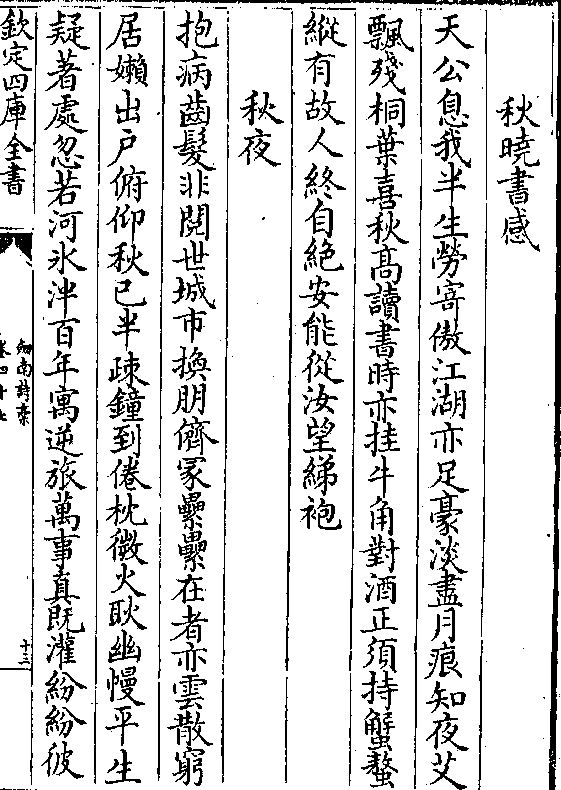 秋曉書感
天公息我半生勞寄傲江湖亦足豪淡盡月痕知夜艾
飄殘桐葉喜秋髙讀書時亦挂牛角對酒正須持蟹螯
縱有故人終自絶安能從汝望綈袍
秋夜
抱病齒髮非閱世城市換朋儕冢纍纍在者亦雲散窮
居嬾出户俯仰秋已半疎鐘到倦枕微火耿幽幔平生
疑著處忽若河氷泮百年寓逆旅萬事真既灌紛紛彼
欽定四庫全書
劒南詩藁
卷四十七
十三